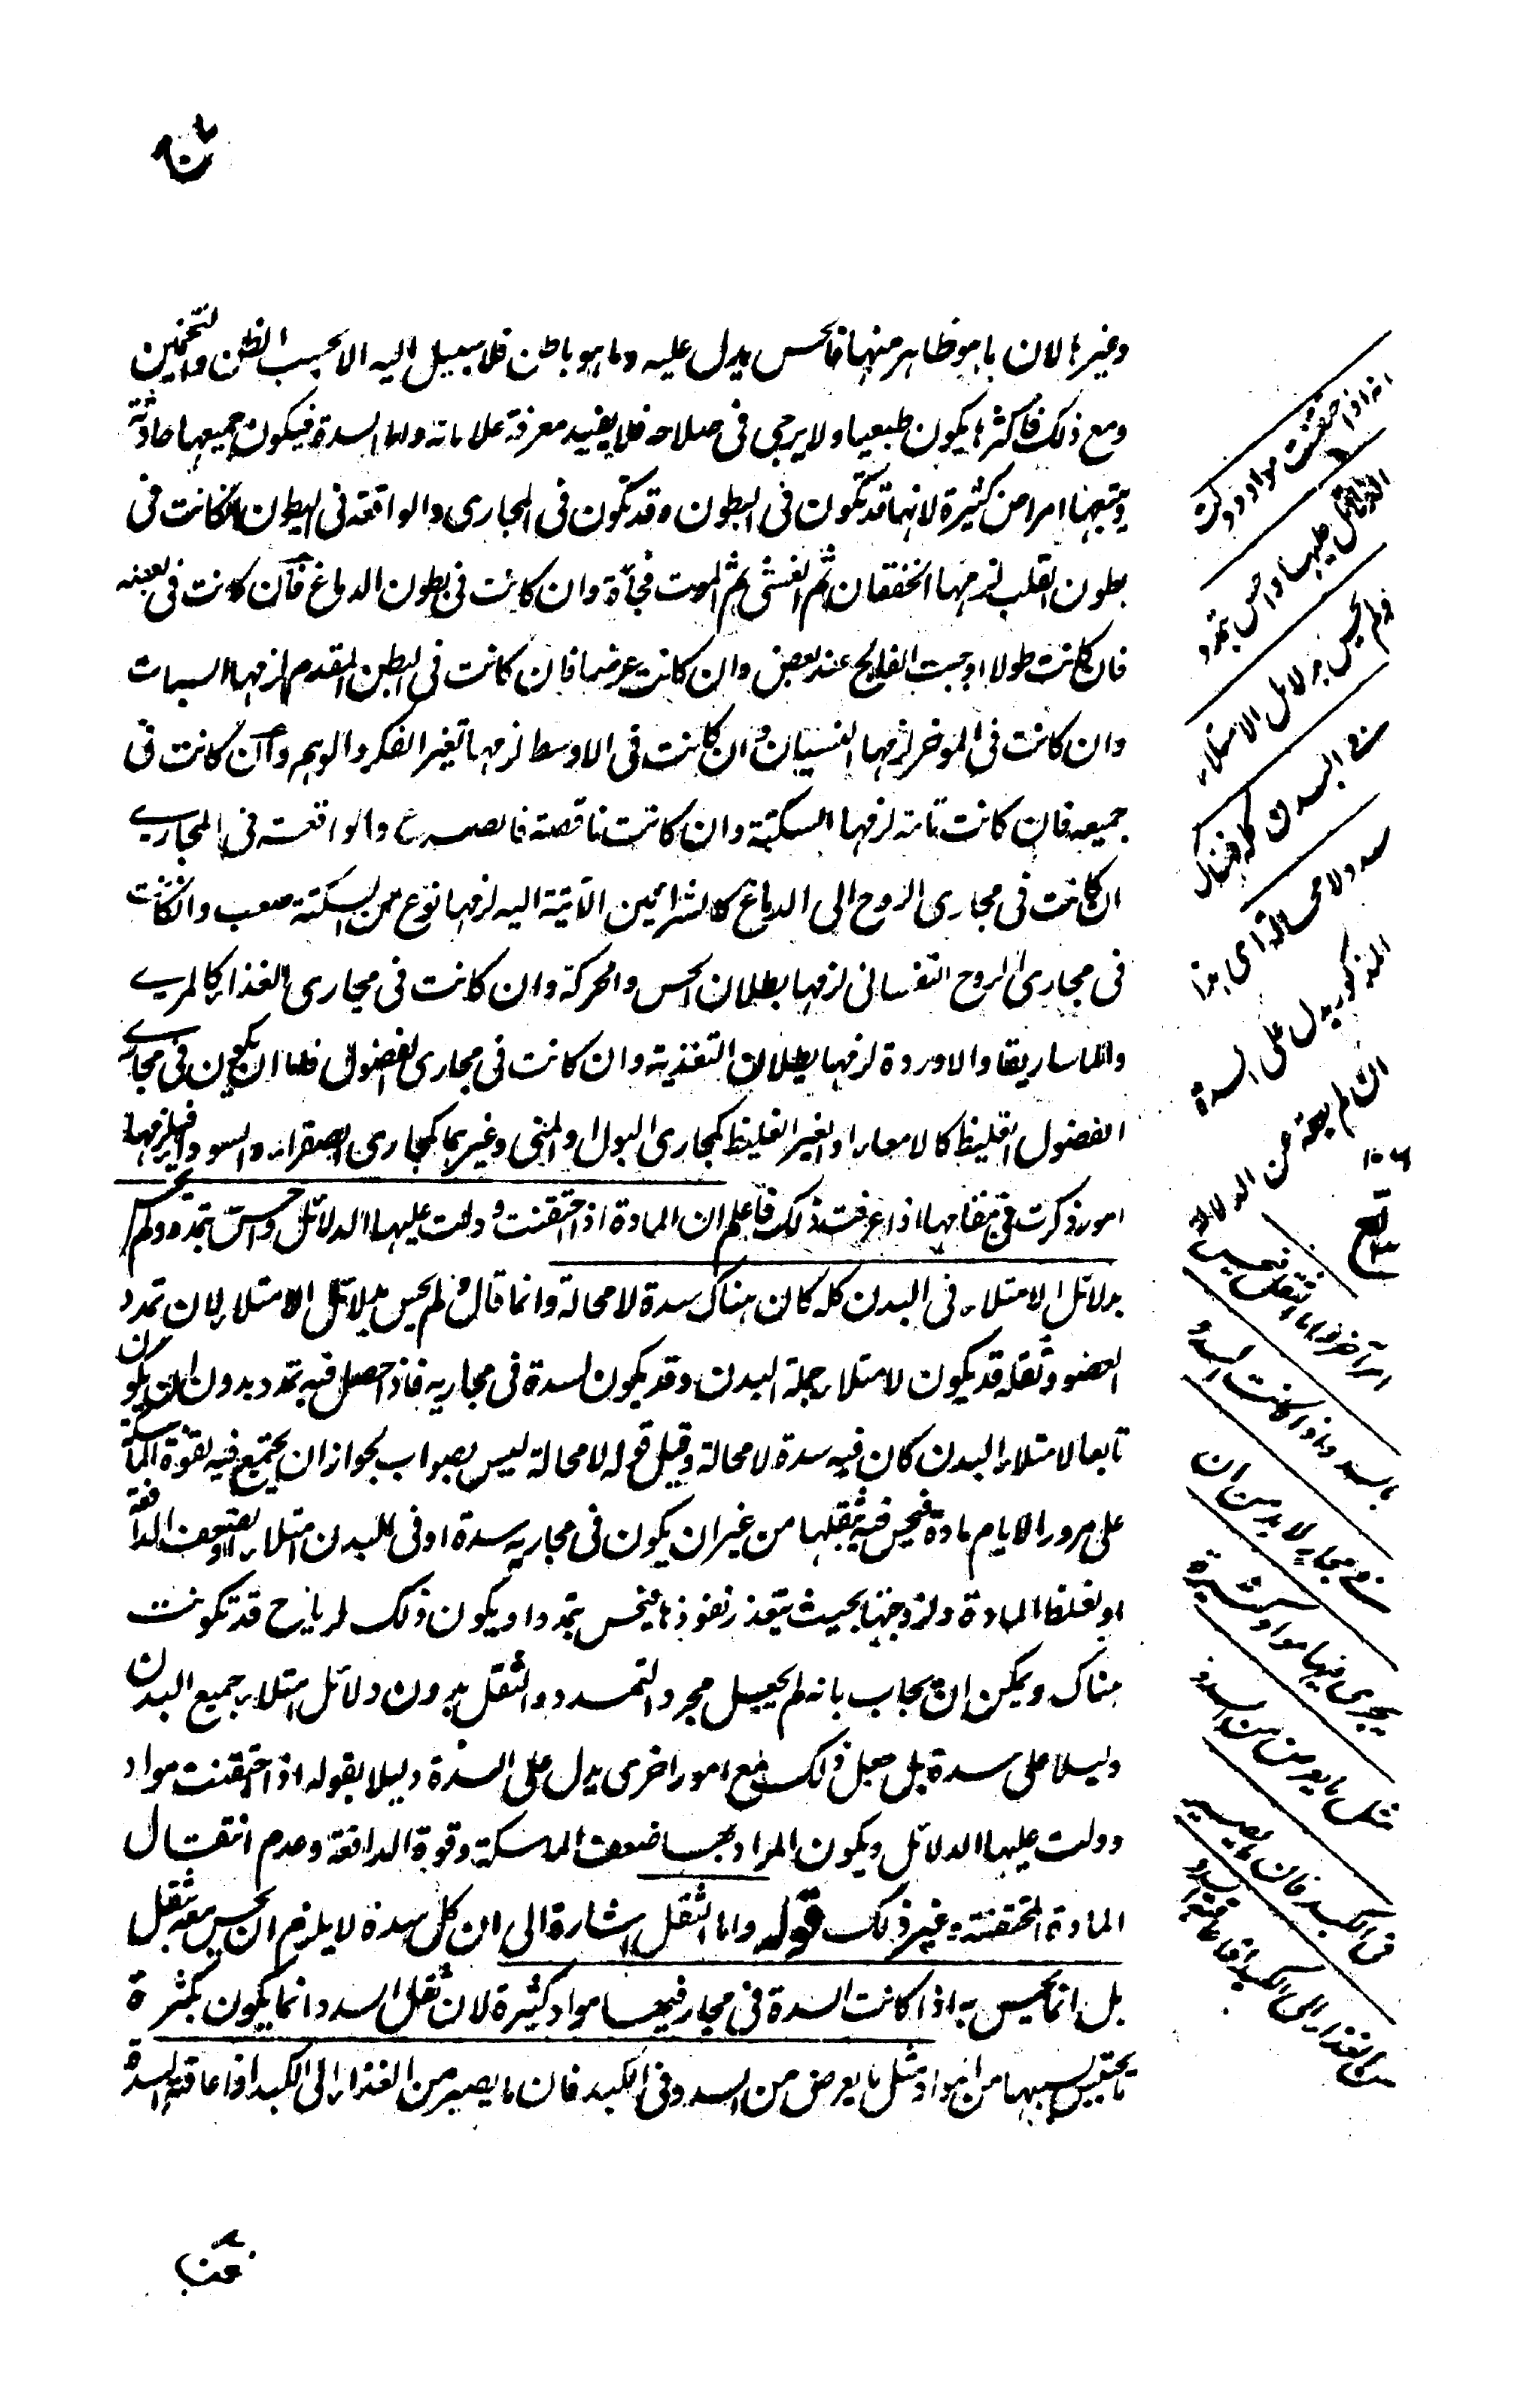 وغيرها لان ما هو ظاهر منها فالحس يدل عليه وما هو باطن فلا سبيل اليه الا بحسب الظن والتخمين
ومع ذلك فاكثرها يكون طبعيا ولا يرجى فى صلاحه فلا يفيد معرفة علاماته واما السدة فيكون جميعها حادثة
ويتبعها امراض كثيرة لانها قد تكون فى البطون وقد تكون فى المجارى والواقعة فى البطون انكانت فى
بطون القلب لزمها الخفقان ثم الغشى ثم الموت فجأة وان كانت فى بطون الدماغ فان كانت فى بعضه
فان كانت طولا اوجبت الفالج عند بعض وان كانت عرضا فان كانت فى البطن المقدم لزمها السبات
وان كانت فى الموخر لزمها النسيان وان كانت فى الاوسط لزمها تغير الفكر والوهم وان كانت فى
جميعه فان كانت تامة لزمها السكتة وان كانت ناقصة فالصرع والواقعة فى المجارى
ان كانت فى مجارى الروح الى الدماغ كالشرائين الآتية اليه لزمها نوع من السكتة صعب وانكانت
فى مجارى الروح النفسانى لزمها بطلان الحس والحركة وان كانت فى مجارى الغذاء كالمرى
والماساريقا والاوردة لزمها بطلان التغذية وان كانت فى مجارى الفضول فاما ان يكون فى مجارى
الفضول الغليظ كالامعاء او الغير الغليظ كمجارى البول او المنى وغيرهما كمجارى الصفراء والسوداء فيلزمها
امور ذكرت فى مقامها اذا عرفت ذلك فاعلم ان المادة اذا احتقنت و دلت عليها الدلائل واحس بتمدد ولم يحس
بدلائل الامتلاء فى البدن كله كان هناك سدة لا محالة وانما قال ولم يحس بدلائل الامتلاء لان تمدد
العضو وثقله قد يكون لامتلاء جملة البدن وقد يكون لسدة فى مجاريه فاذا حصل فيه تمدد بدون ان يكون
تابعا لامتلاء البدن كان فيه سدة لا محالة وقيل قوله لا محالة ليس بصواب لجواز ان يجتمع فيه لقوة الماسكة
على مرور الايام مادة فيحس فيه بثقلها من غير ان يكون فى مجاريه سدة او فى البدن امتلاء او لضعف الدافعة
او لغلظ المادة ولزوجتها بحيث يتعذر نفوذها فيحس بتمدد او يكون ذلك لرياح قد تكونت
هناك ويمكن ان يجاب بانه لم يجعل مجرد التمدد والثقل بدون دلائل امتلاء جميع البدن
دليلا على سدة بل جعل ذلك مع امور اخرى يدل على السدة دليلا بقوله اذا احتقنت مواد
ودلت عليها الدلائل ويكون المراد بها ضعف الماسكة وقوة الدافعة وعدم انتقال
المادة المحتقنة وغير ذلك قوله واما الثقل اشارة الى ان كل سدة لا يلزم ان يحس معه بثقل
بل انما يحس به اذا كانت السدة فى مجار فيها مواد كثيرة لان ثقل السدد انما يكون بكثرة
ما يحتبس بسببها من المواد مثل ما يعرض من السدد فى الكبد فان ما يصير من الغذاء الى الكبد اذا عاقته السدة
انه اذا احتقنت مواد ودلت
الدلائل عليها واحس بتمدد
ولم يحس بدلائل الامتلاء
فى البدن كله فهناك
سدد لا محالة
المذكور يدل على السدة
١٥٦
واما الثقل فيحس
فى مجار لا بد من ان
يجرى فيها مواد كثيرة
مثل ما يعرض من السدد
فى الكبد فان ما يصير
من الغذاء الى الكبد اذا عاقته السدد